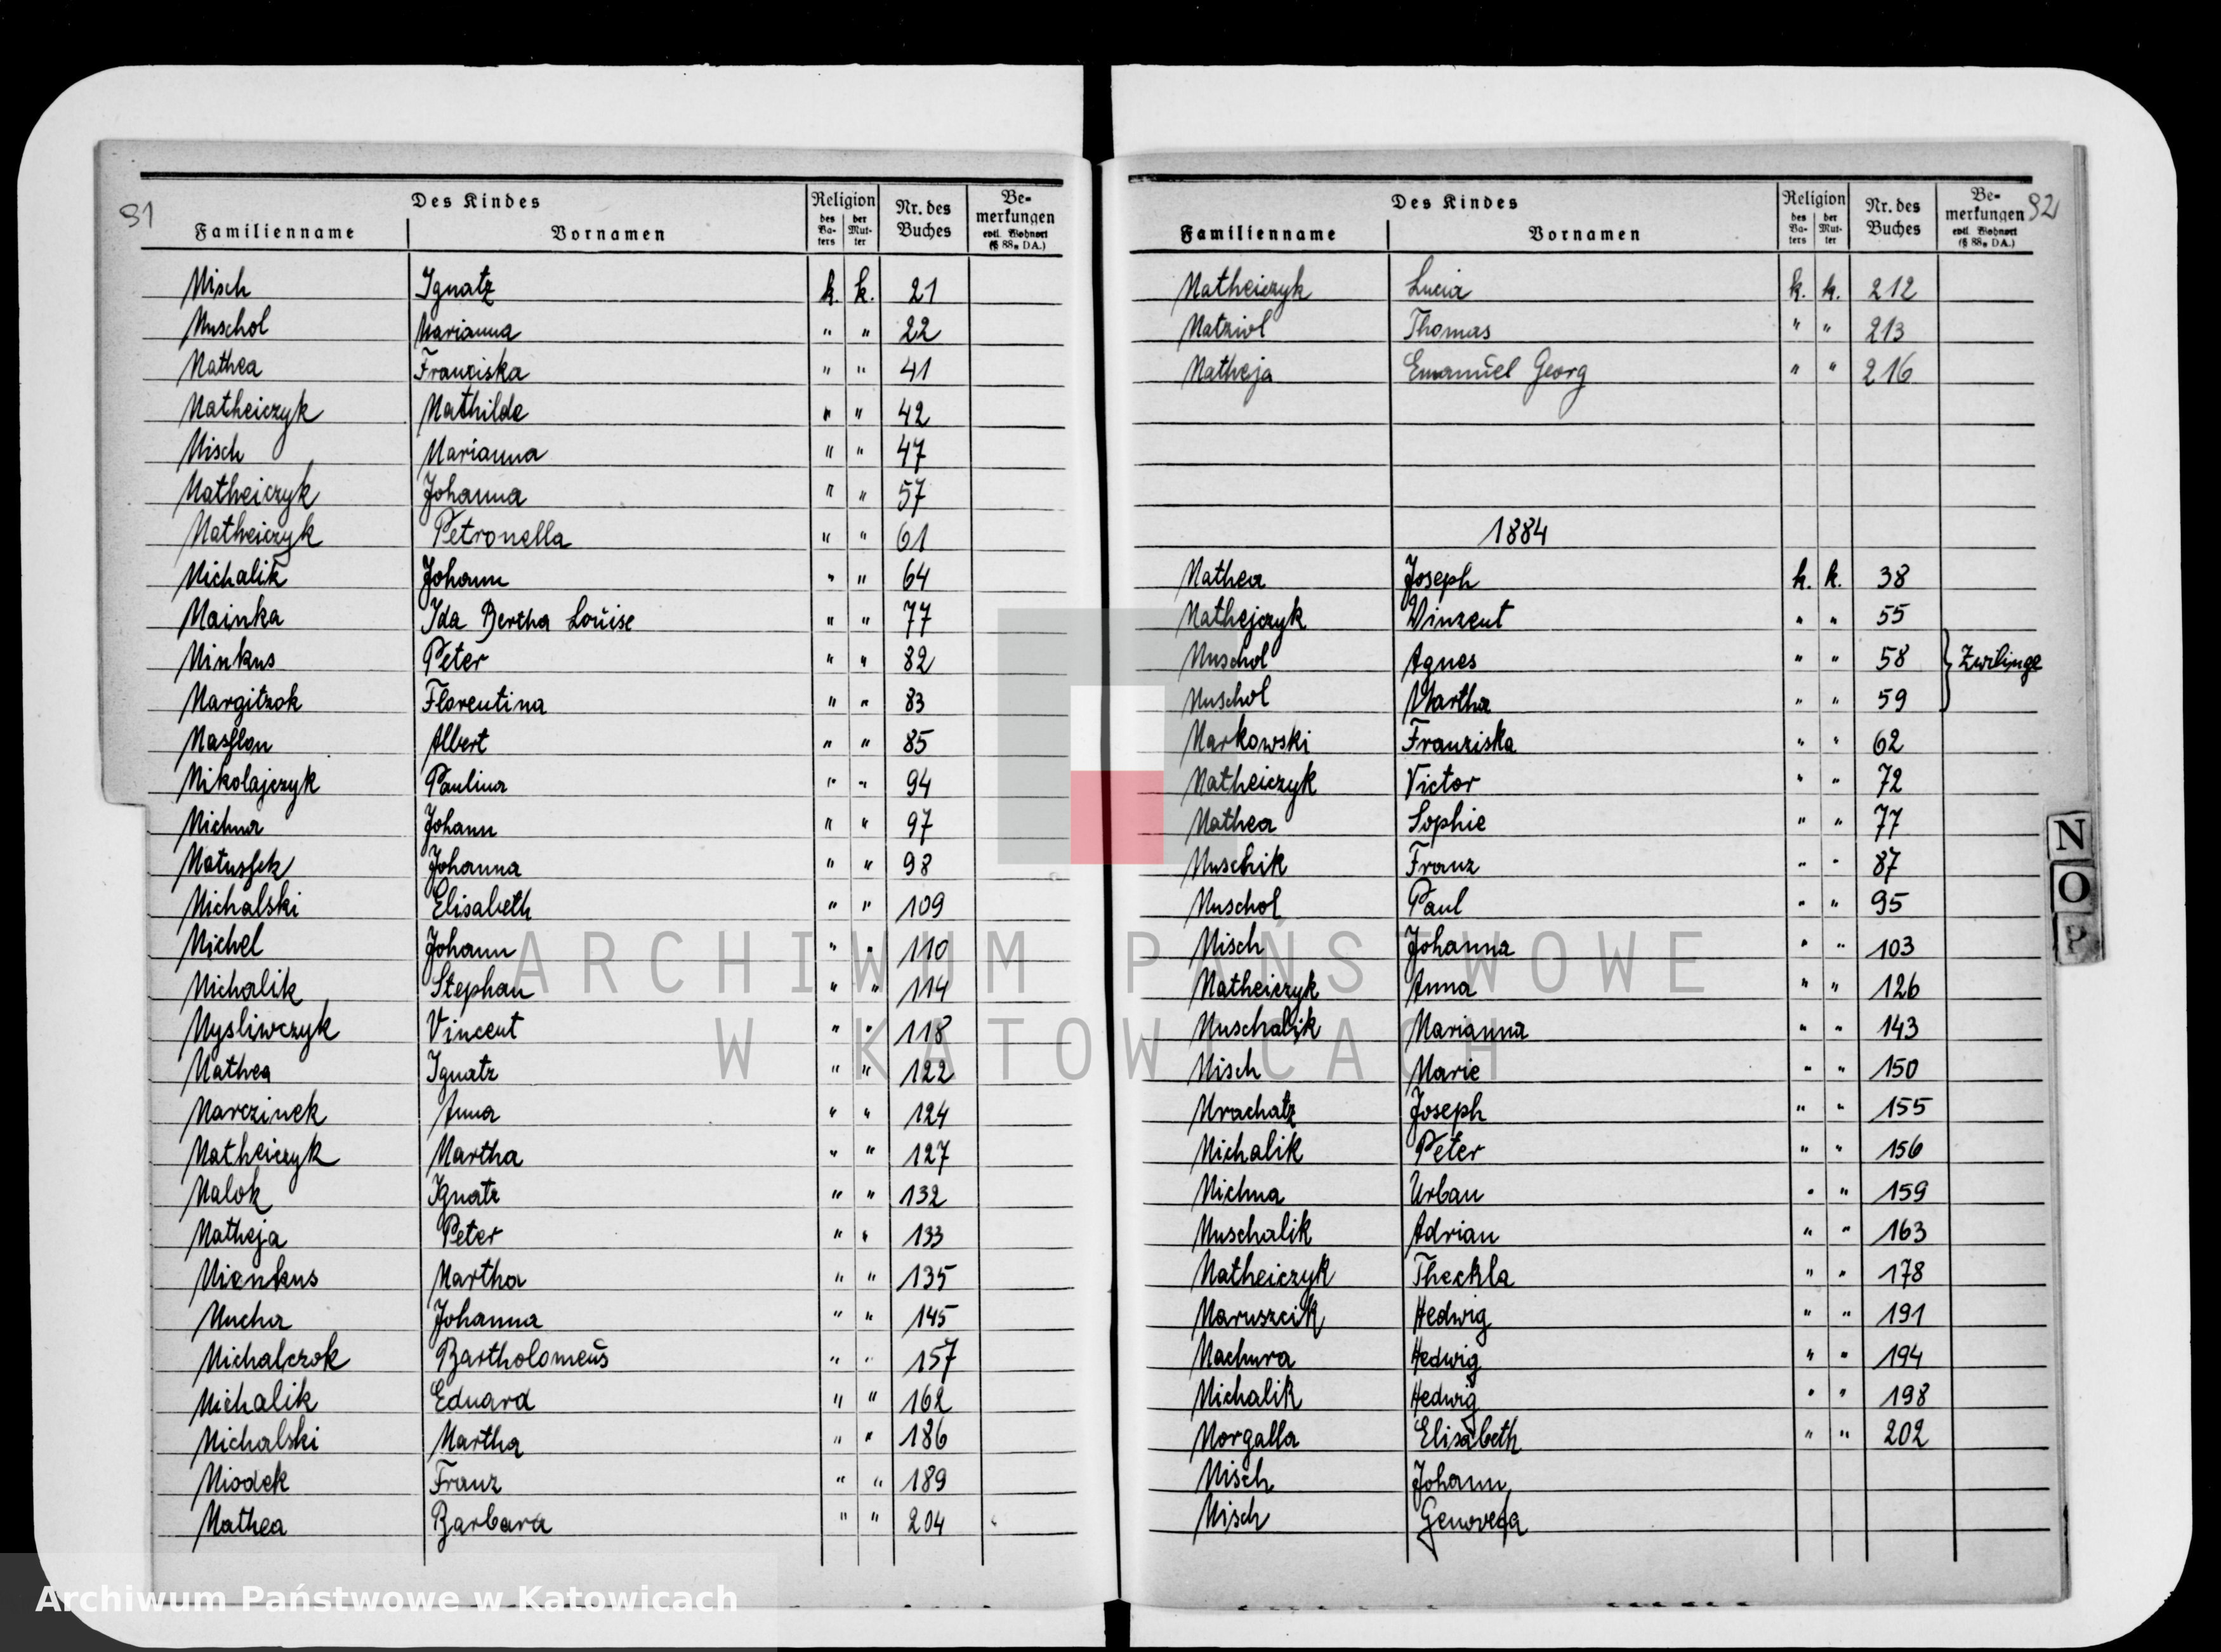 91
Des Kindes
Religion
Nr. des Buches
Be-merkungen
evtl. Wohnort
(§ 88, DA.)
Familienname Vornamen des Va-ters der Mut-ter
Misch Ignatz k. k. 21
Muschol Marianna " " 22
Mathea Franciska " " 41
Matheiczyk Mathilde " " 42
Misch Marianna " " 47
Matheiczyk Johanna " " 57
Matheiczyk Petronella " " 61
Michalik Johann " " 64
Mainka Ida Bertha Louise " " 77
Minkus Peter " " 82
Margitzok Florentina " " 83
Masslon Albert " " 85
Mikolajczyk Paulina " " 94
Michna Johann " " 97
Matussek Johanna " " 98
Michalski Elisabeth " " 109
Michel Johann " " 110
Michalik Stephan " " 114
Mysliwczyk Vincent " " 118
Mathea Ignatz " " 122
Marczinek Anna " " 124
Matheiczyk Martha " " 127
Malok Ignatz " " 132
Matheja Peter " " 133
Mienkus Martha " " 135
Mucha Johanna " " 145
Michalczok Bartholomeus " " 157
Michalik Eduard " " 162
Michalski Martha " " 186
Miodek Franz " " 189
Mathea Barbara " " 204
92
Des Kindes
Religion
Nr. des Buches
Be-merkungen
evtl. Wohnort
(§ 88, DA.)
Familienname Vornamen des Va-ters der Mut-ter
Matheiczyk Lucia k. k. 212
Matziol Thomas " " 213
Matheja Emanuel Georg " " 216
1884
Mathea Joseph k. k. 38
Mathejczyk Vinzent " " 55
Muschol Agnes " " 58 } Zwilinge
Muschol Martha " " 59
Markowski Franziska " " 62
Matheiczyk Victor " " 72
Mathea Sophie " " 77
Muschik Franz " " 87
Muschol Paul " " 95
Misch Johanna " " 103
Matheiczyk Anna " " 126
Muschalik Marianna " " 143
Misch Marie " " 150
Mrachatz Joseph " " 155
Michalik Peter " " 156
Michna Urban " " 159
Muschalik Adrian " " 163
Matheiczyk Theckla " " 178
Maruszcik Hedwig " " 191
Machura Hedwig " " 194
Michalik Hedwig " " 198
Morgalla Elisabeth " " 202
Misch Johann,
Misch Genovefa
N
O
P
ARCHIWUM PAŃSTWOWE
W KATOWICACH
Archiwum Państwowe w Katowicach